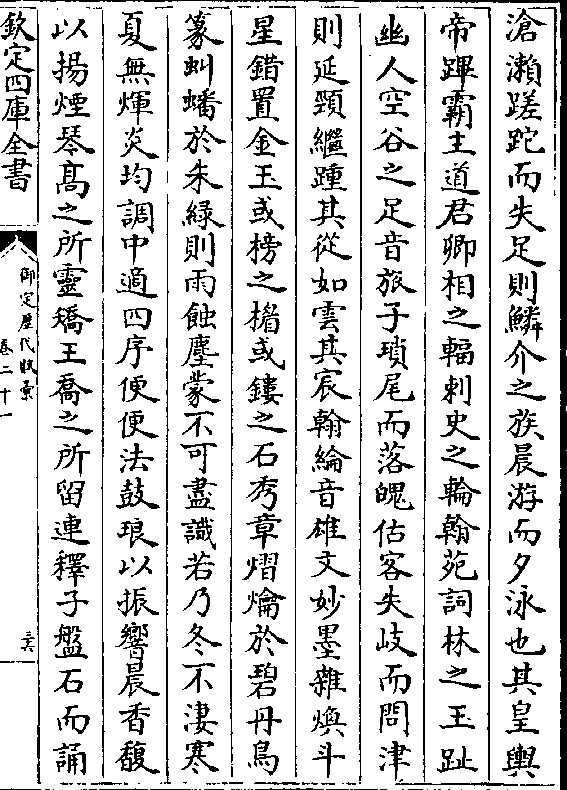 滄瀨蹉跎而失足則鱗介之族晨游而夕泳也其皇輿
帝蹕霸主道君卿相之輻刺史之輪翰苑詞林之玉趾
幽人空谷之足音旅子瑣尾而落魄估客失岐而問津
則延頸繼踵其從如雲其宸翰綸音雄文妙墨雜煥斗
星錯置金玉或榜之楣或鏤之石秀章熠爚於碧丹鳥
篆虯蟠於朱綠則雨蝕塵蒙不可盡識若乃冬不淒寒
夏無煇炎均調中適四序便便法鼓琅以振響晨香馥
以揚煙琴髙之所靈矯王喬之所留連釋子盤石而誦
欽定四庫全書
御定歷代賦彙
卷二十一
三六